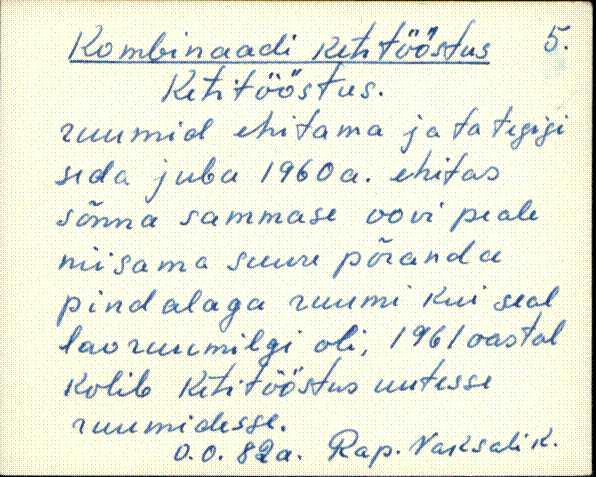 Kombinaadi Ketitööstus 5.
Ketitööstus.
ruumid ehitama ja ta tegigi
seda juba 1960a. ehitas
sõnna sammase oovi peale
niisama suure põranda
pindalaga ruumi kui seal
laoruumilgi oli, 1961 aastal
kolib Ketitööstus uutesse
ruumidesse.
O.O. 82a. Rap. Vaksali K.